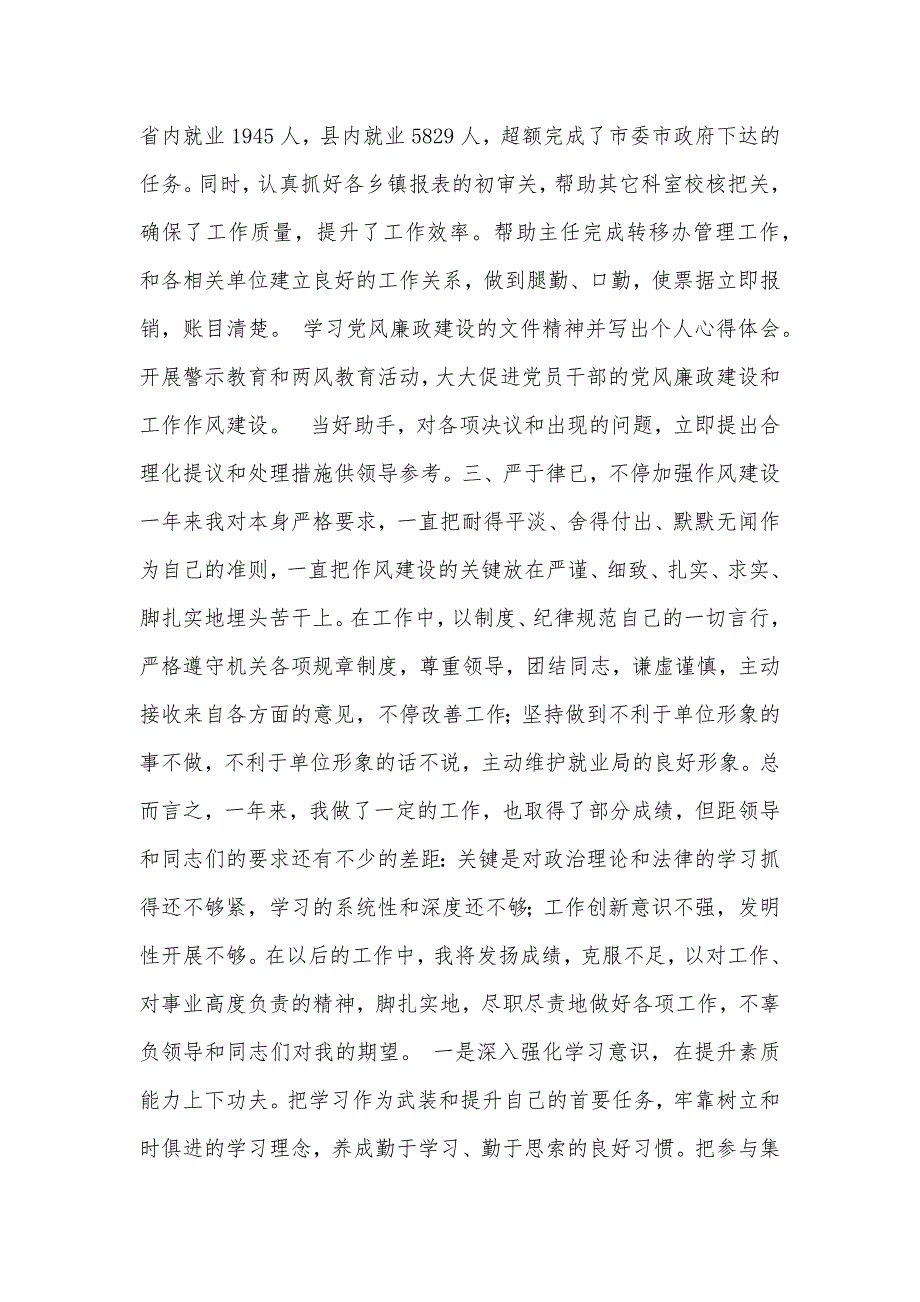 省内就业 1945 人，县内就业 5829 人，超额完成了市委市政府下达的
任务。同时，认真抓好各乡镇报表的初审关，帮助其它科室校核把关，
确保了工作质量，提升了工作效率。帮助主任完成转移办管理工作，
和各相关单位建立良好的工作关系，做到腿勤、口勤，使票据立即报
销，账目清楚。 学习党风廉政建设的文件精神并写出个人心得体会。
开展警示教育和两风教育活动，大大促进党员干部的党风廉政建设和
工作作风建设。  当好助手，对各项决议和出现的问题，立即提出合
理化提议和处理措施供领导参考。三、严于律已，不停加强作风建设
一年来我对本身严格要求，一直把耐得平淡、舍得付出、默默无闻作
为自己的准则，一直把作风建设的关键放在严谨、细致、扎实、求实、
脚扎实地埋头苦干上。在工作中，以制度、纪律规范自己的一切言行，
严格遵守机关各项规章制度，尊重领导，团结同志，谦虚谨慎，主动
接收来自各方面的意见，不停改善工作；坚持做到不利于单位形象的
事不做，不利于单位形象的话不说，主动维护就业局的良好形象。总
而言之，一年来，我做了一定的工作，也取得了部分成绩，但距领导
和同志们的要求还有不少的差距：关键是对政治理论和法律的学习抓
得还不够紧，学习的系统性和深度还不够；工作创新意识不强，发明
性开展不够。在以后的工作中，我将发扬成绩，克服不足，以对工作、
对事业高度负责的精神，脚扎实地，尽职尽责地做好各项工作，不辜
负领导和同志们对我的期望。 一是深入强化学习意识，在提升素质
能力上下功夫。把学习作为武装和提升自己的首要任务，牢靠树立和
时俱进的学习理念，养成勤于学习、勤于思索的良好习惯。把参与集